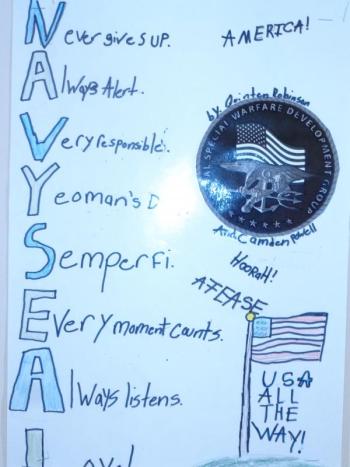 AMERICA!
Never gives up.
Always Alert.
by Quinten Robinson
NAVAL SPECIAL WARFARE DEVELOPMENT GROUP
Very responsible.
Yeoman's D
And Camden Powell
HOORAH!
Semper Fi.
ATEASE
Every moment counts.
USA
ALL
THE
WAY!
Always listens.
Loyal